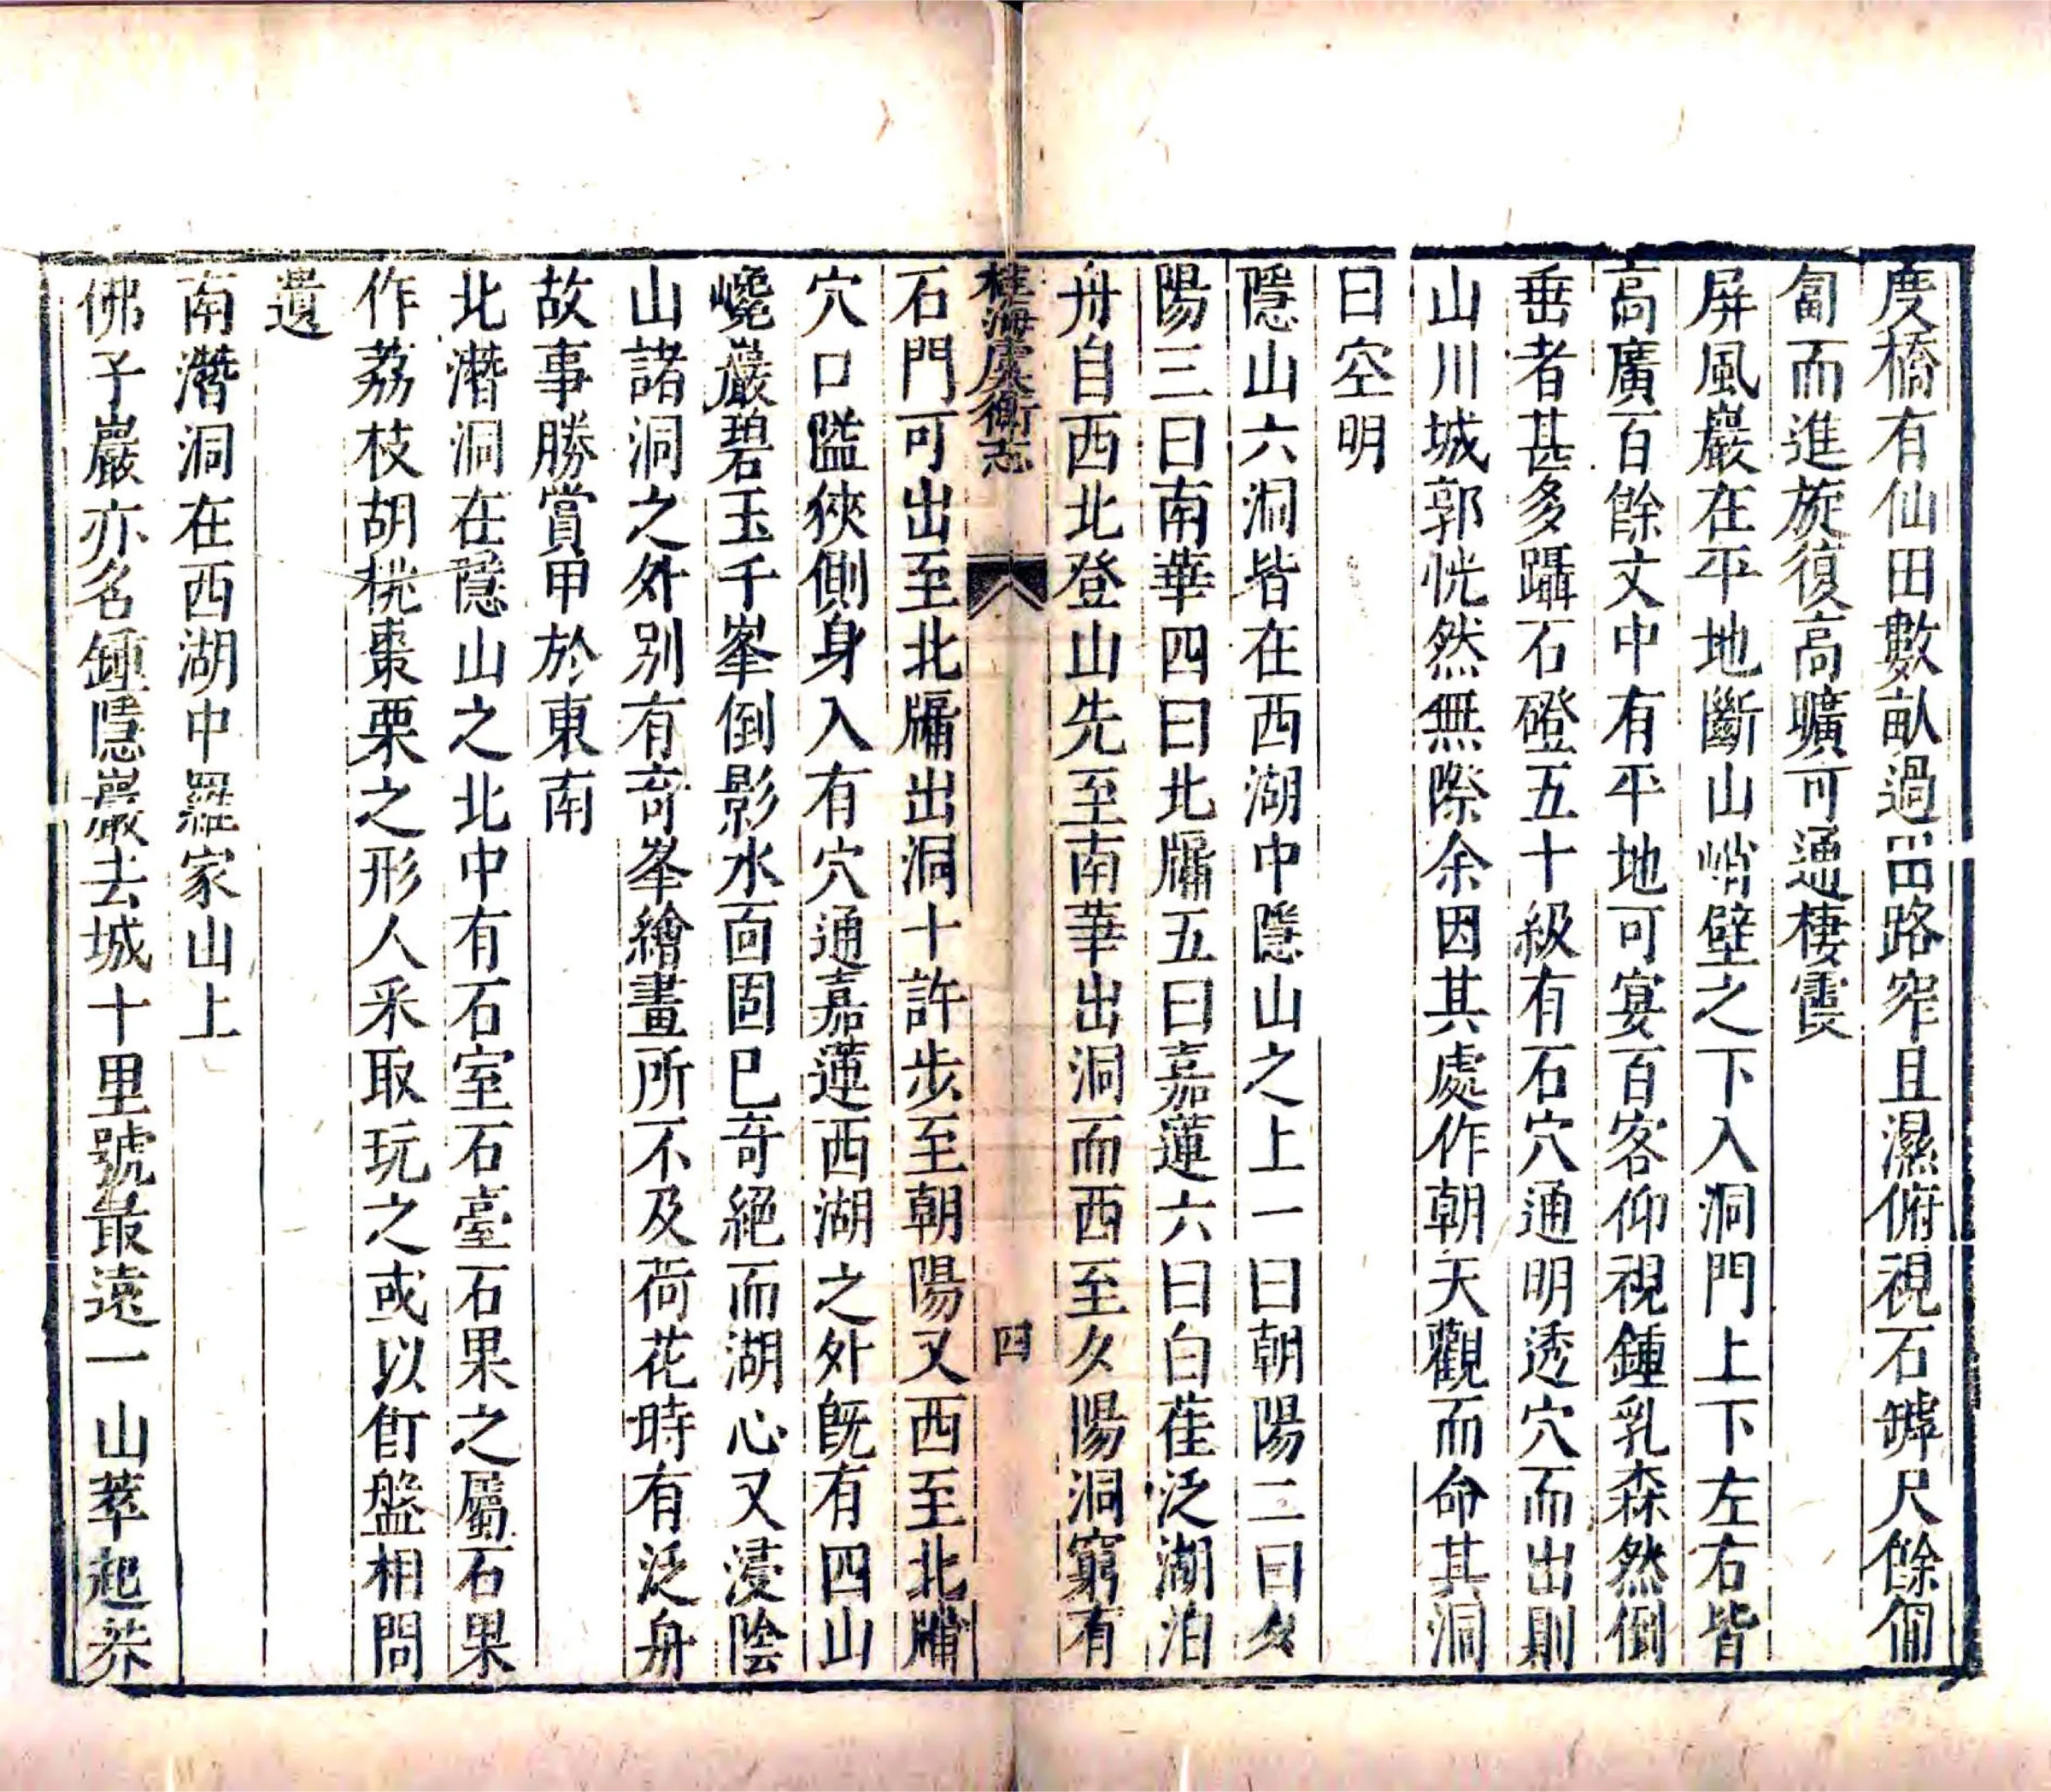 度橋有仙田數畝過田路窄且濕俯視石罅尺餘匍
匐而進旋復高曠可通棲霞
屏風巖在平地斷山峭壁之下入洞門上下左右皆
高廣百餘丈中有平地可宴百客仰視鍾乳森然倒
垂者甚多躡石磴五十級有石穴通明透穴而出則
山川城郭恍然無際余因其處作朝天觀而命其洞
曰空明
隱山六洞皆在西湖中隱山之上一曰朝陽二曰夕
陽三曰南華四曰北牖五曰嘉蓮六曰白雀泛湖泊
舟自西北登山先至南華出洞而西至夕陽洞窮有
桂海虞衡志
四
石門可出至北牖出洞十許步至朝陽又西至北牖
穴口隘狹側身入有穴通嘉蓮西湖之外既有四山
巉巖碧玉千峯倒影水面固已奇絕而湖心又浸陰
山諸洞之外別有奇峯繪畫所不及荷花時有泛舟
故事勝賞甲於東南
北潛洞在隱山之北中有石室石臺石果之屬石果
作荔枝胡桃棗栗之形人采取玩之或以飣盤相問
遺
南潛洞在西湖中羅家山上
佛子巖亦名鍾隱巖去城十里號最遠一山萃起莽